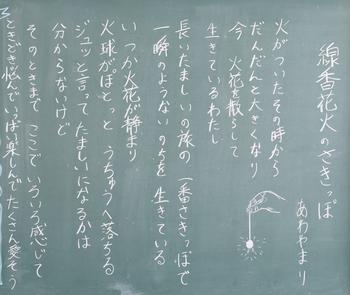 線香花火のさきっぽ
あわやまり
火がついたその時から
だんだんと大きくなり
今 火花を散らして
生きているわたし
長いたましいの旅の 一番さきっぽで
一瞬のような いのちを 生きている
いつか火花が静まり
火球がぽとっと うちゅうへ落ちる
ジュッと言って たましいになるかは
分からないけど
そのときまで ここで いろいろ感じて
ときどき悩んで いっぱい楽しんで たくさん愛そう